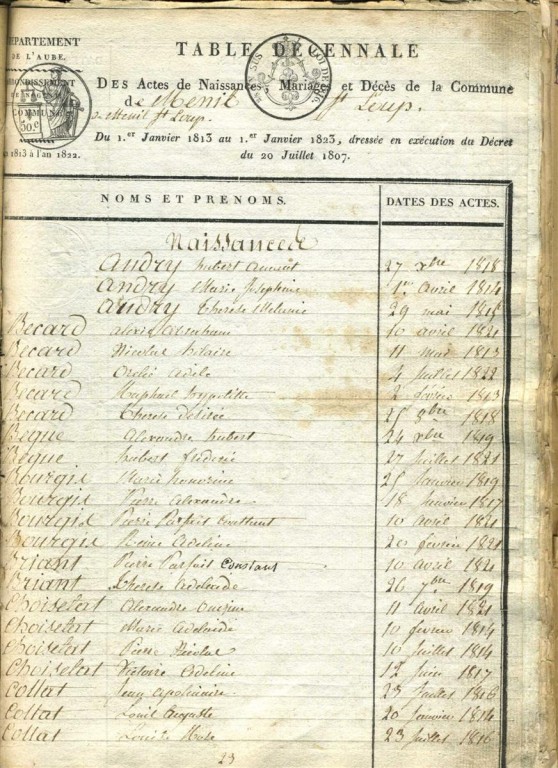 EPARTEMENT
DE L'AUBE.
TABLE DÉCENNALE
DES Actes de Naissances, Mariages et Décès de la Commune
de Mesnil St Loup.
Mesnil St Loup.
Du 1.er Janvier 1813 au 1.er Janvier 1823, dressée en exécution du Décret
1813 à l'an 1822.
du 20 Juillet 1807.
NOMS ET PRENOMS. DATES DES ACTES.
Naissance de
Audry hubert 27 xbre 1818
Audry Marie Josephine 1er avril 1814
Audry Therese Melanie 29 mai 1818
Becard alexis 10 avril 1821
Becard Nicolas hilaire 11 mai 1813
Becard adele 4 Juillet 1822
Becard Raphael 2 février 1813
Becard Therese Desirée 8bre 1818
Beque alexandre hubert 24 xbre 1819
Beque hubert 27 Juillet 1821
Bourgis Marie honorine 25 Janvier 1819
Bourgis Pierre alexandre 18 Janvier 1817
Bourgis Pierre Parfait Constant 10 avril 1821
Bourgis Reine adeline 20 février 1821
Briant Pierre Parfait Constant 10 avril 1821
Briant Therese adelaide 26 7bre 1819
Choiselat alexandre 11 avril 1821
Choiselat Marie adelaide 10 février 1814
Choiselat Pierre Nicolas 10 Juillet 1814
Choiselat Victoire adeline 12 Juin 1817
Collat Jean apolinaire 23 Juillet 1816
Collat Louis Auguste 20 Janvier 1814
Collat Louise Rose 23 Juillet 1816
23